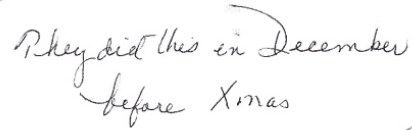 They did this in December
before Xmas